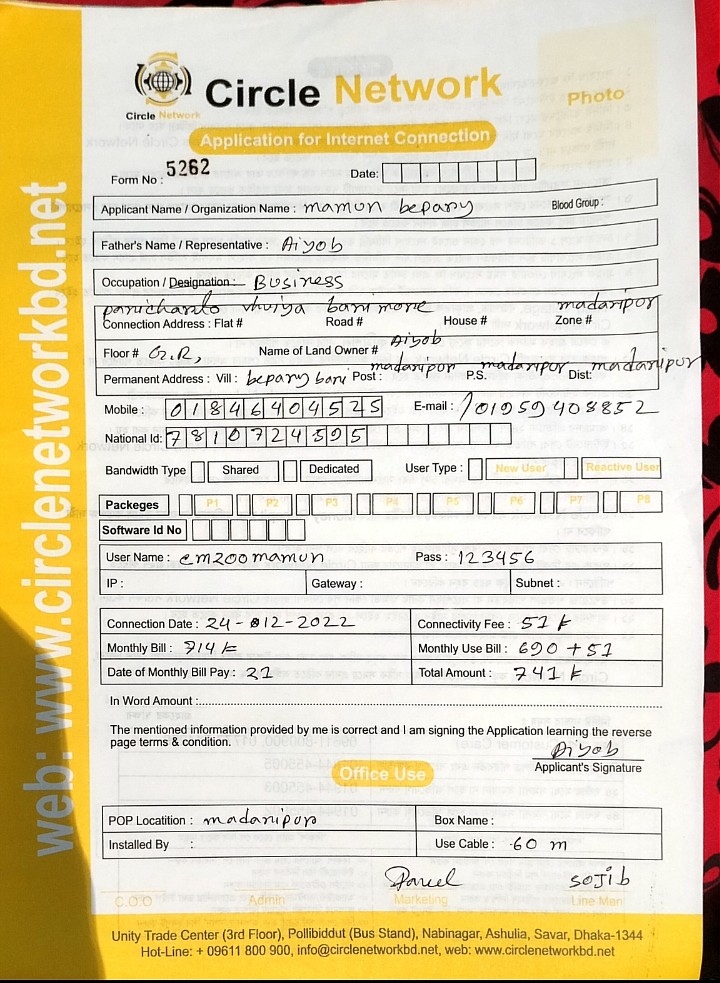 Circle Network
Circle Network
Photo
Application for Internet Connection
Form No : 5262
Date:
Applicant Name / Organization Name : mamun bepary Blood Group :
Father's Name / Representative : Aiyob
Occupation / Designation : Business
panicharato vhuiya bari more madaripur
Connection Address : Flat # Road # House # Zone #
Floor # G.R, Name of Land Owner # Aiyob
Permanent Address : Vill : bepary bari Post : madaripur P.S. madaripur Dist: madaripur
Mobile : 01846404525 E-mail : /01959408852
National Id: 7810724595
Bandwidth Type Shared Dedicated User Type : New User Reactive User
Packeges P1 P2 P3 P4 P5 P6 P7 P8
Software Id No
User Name : cm200mamun Pass : 123456
IP : Gateway : Subnet :
Connection Date : 24-12-2022 Connectivity Fee : 51 k
Monthly Bill : 714 k Monthly Use Bill : 690 + 51
Date of Monthly Bill Pay : 21 Total Amount : 741 k
In Word Amount :
The mentioned information provided by me is correct and I am signing the Application learning the reverse
page terms & condition.
Aiyob
Applicant's Signature
Office Use
POP Locatition : madaripur Box Name :
Installed By : Use Cable : 60 m
sojib
C.O.O Admin Marketing Line Man
Unity Trade Center (3rd Floor), Pollibiddut (Bus Stand), Nabinagar, Ashulia, Savar, Dhaka-1344
Hot-Line: + 09611 800 900, info@circlenetworkbd.net, web: www.circlenetworkbd.net
web: www.circlenetworkbd.net